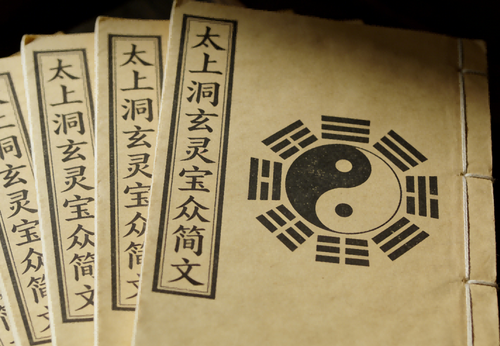 太上洞玄灵宝众简文
太上洞玄灵宝众简文
太上洞玄灵宝众简文
洞玄灵宝众简